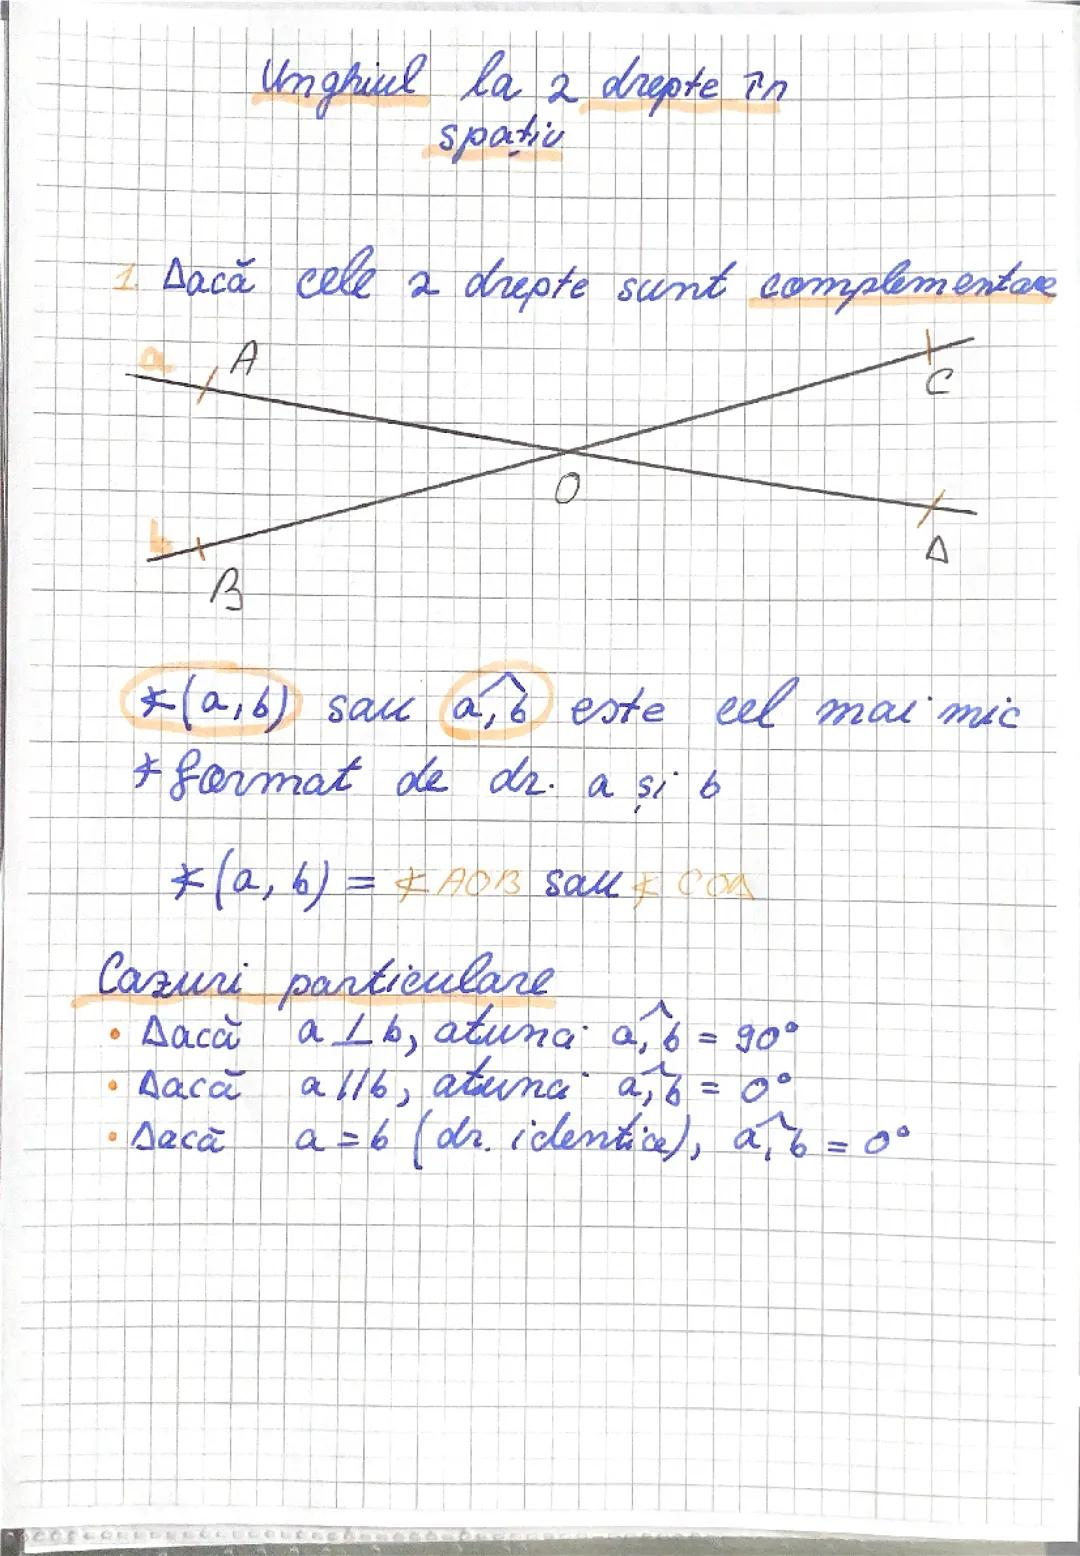 Unghiul la 2 drepte în
spațiu
1. Dacă cele 2 drepte sunt complementare
a A
C
O
b
B
D
∢(a,b) sau a,b este cel mai mic
∢ format de dr. a și b
∢(a, b) = ∢ AOB sau ∢ COD
Cazuri particulare
• Dacă a ⊥ b, atunci a,b = 90°
• Dacă a || b, atunci a,b = 0°
• Dacă a = b (dr. identice), a,b = 0°